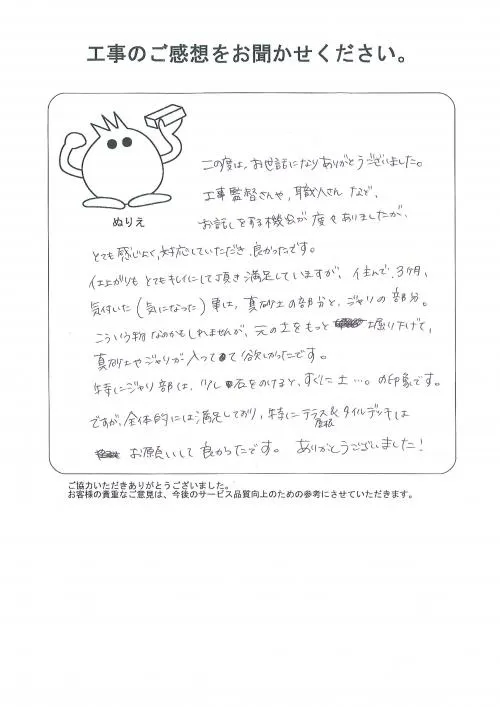 工事のご感想をお聞かせください。
ぬりえ
この度は、お世話になりありがとうございました。
工事監督さんや、職人さんなど、
お話しをする機会が度々ありましたが、
とても感じよく、対応していただき、良かったです。
仕上がりもとてもキレイにして頂き満足していますが、住んで、3ヶ月、
気付いた(気になった)事は、真砂土の部分と、ジャリの部分。
こういう物なのかもしれませんが、元の土をもっと堀り下げて、
真砂土やジャリが入ってて欲しかったです。
特にジャリ部は、少し石をのけると、すぐに土…。の印象です。
ですが、全体的には満足しており、特にテラス屋根&タイルデッキは
お願いして良かったです。ありがとうございました!
ご協力いただきありがとうございました。
お客様の貴重なご意見は、今後のサービス品質向上のための参考にさせていただきます。